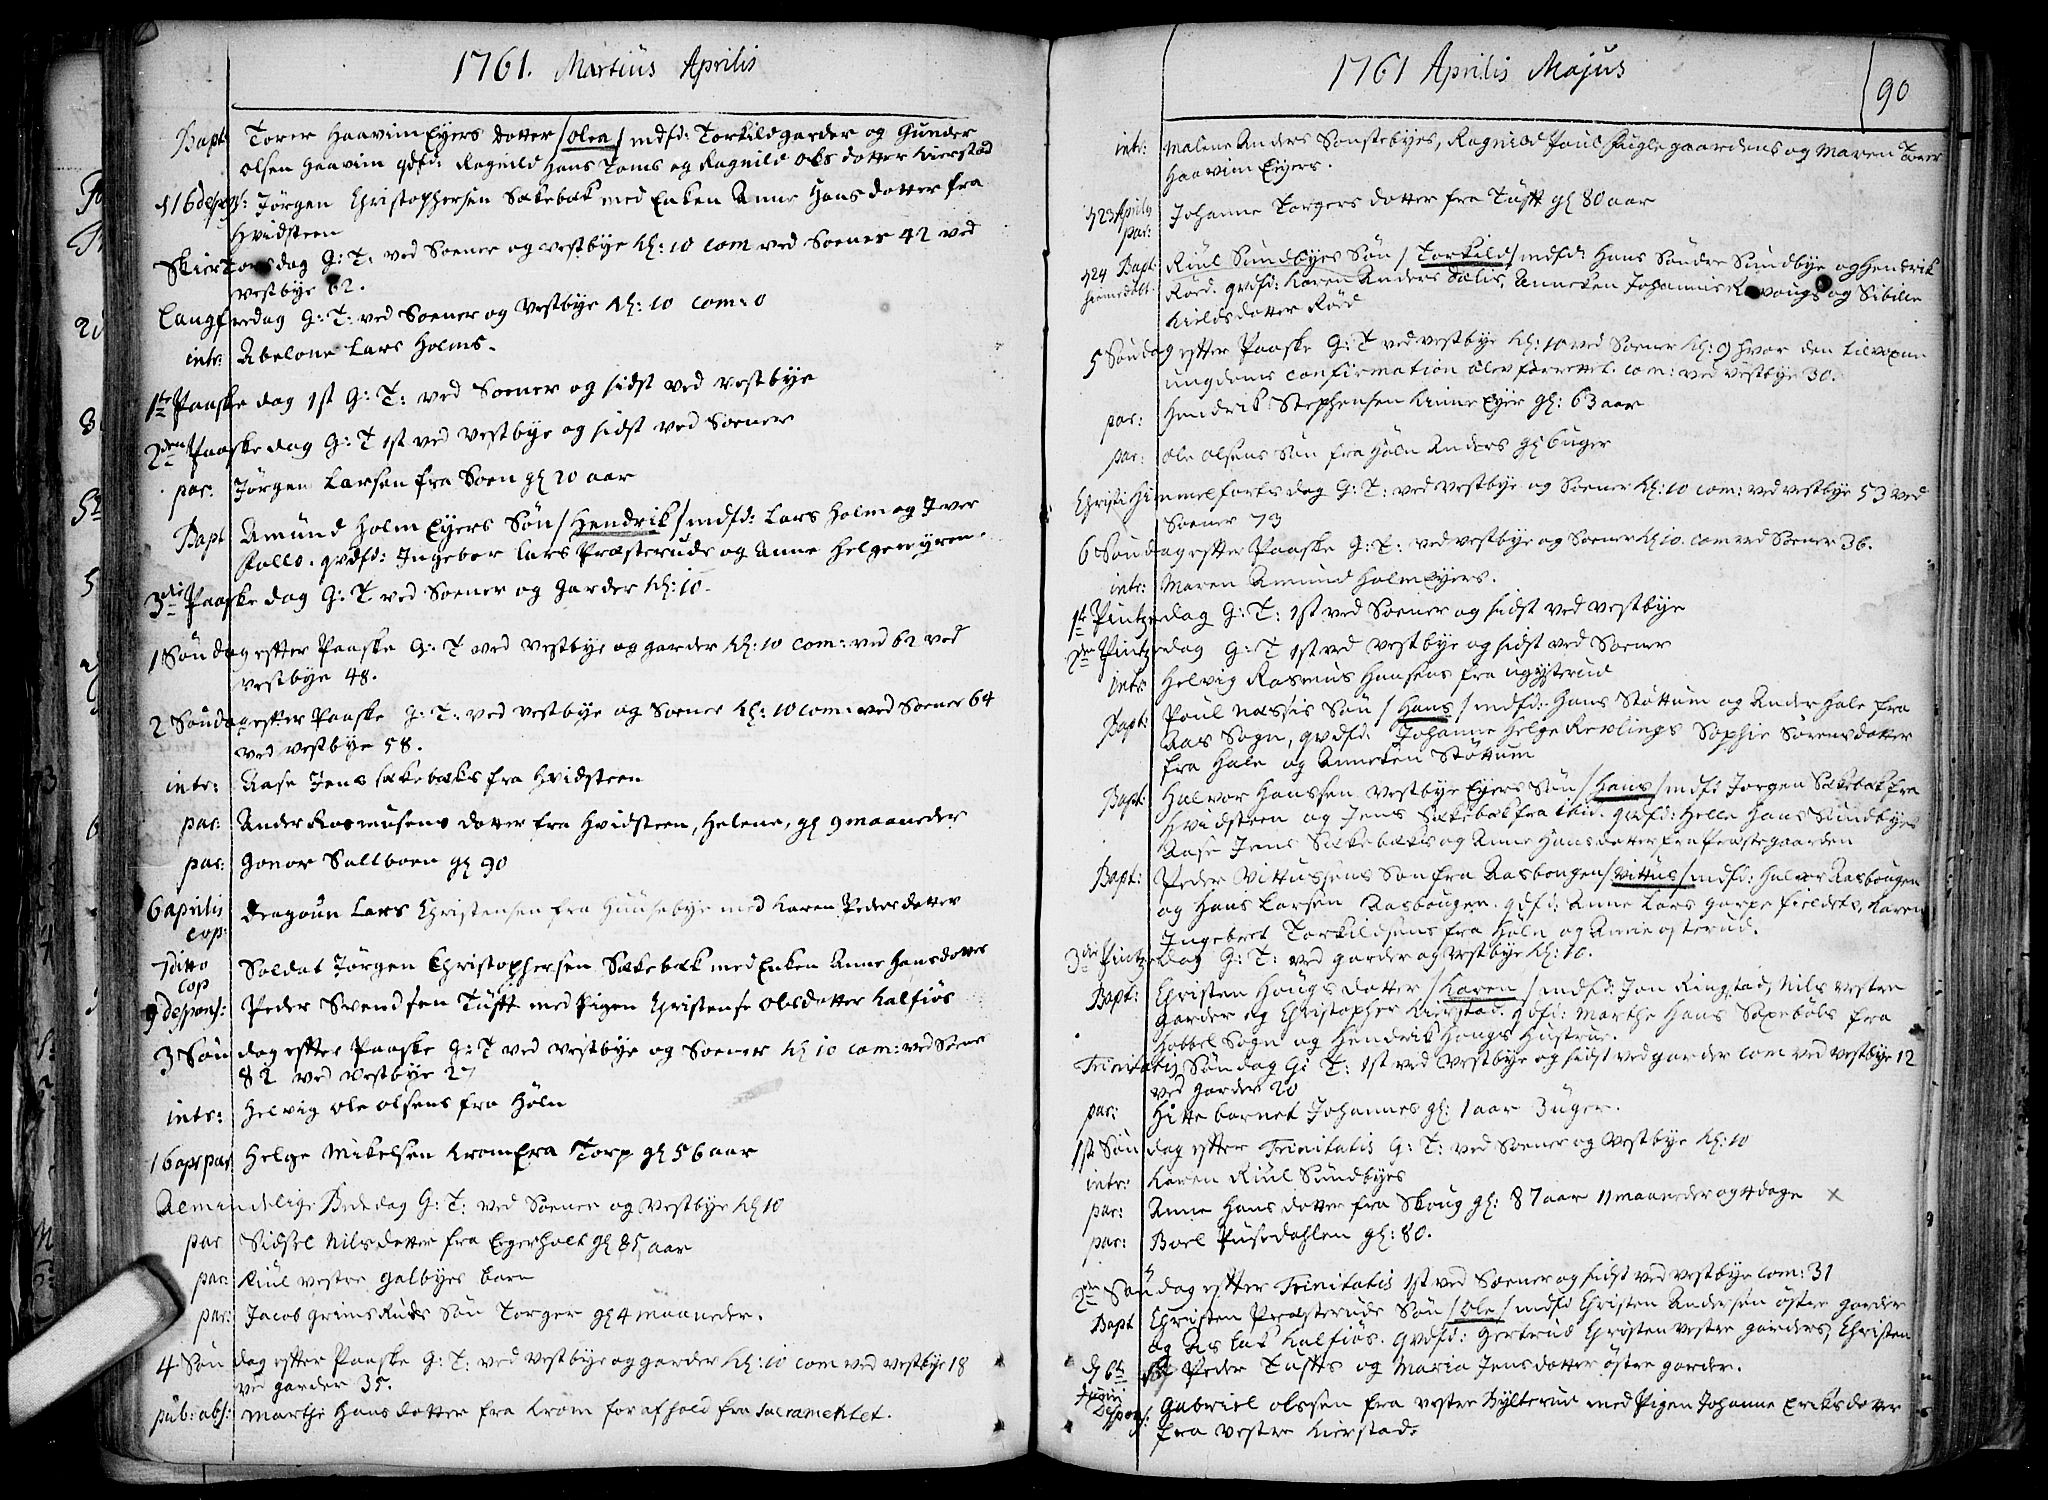 1761. Martius Aprilis
Bapt: Torer Haavim Eyers dotter /Olea/ mdfd: Torkild garder og Gunder
Olsen Haavim qdfd: Ragnild Hans Toms og Ragnild Ols dotter Kierstad
d 16 despons: Jørgen Christophersen Sækebæk med Enken Anne Hans dotter fra
Hvidsteen
Skiertorsdag G: T: ved Soener og Vestbye Kl: 10 com ved Soener 42 ved
Vestbye 62.
Langfredag G: T: ved Soener og Vestbye Kl: 10 com: 0
intr: Abelone Lars Holms.
1ste Paaske dag 1st G: T: ved Soener og sidst ved Vestbye
2den Paaske dag G: T 1st ved Vestbye og sidst ved Soener
par: Jørgen Larsen fra Soen gl 20 aar
Bapt Amund Holm Eyers Søn /Hendrik/ mdfd: Lars Holm og Iver
Follo. qvdfd: Ingebor Lars Præsteruds og Anne Helgemyren.
3die Paaske dag G: T ved Soener og Garder Kl: 10.
1 Søndag efter Paaske G: T ved Vestbye og garder Kl: 10 com: ved 62 ved
Vestbye 48.
2 Søndag efter Paaske G: T: ved Vestbye og Soener Kl: 10 com: ved Soener 64
ved Vestbye 58.
intr: Aase Jens Sækebæks fra Hvidsteen
par: Ander Rasmusens dotter fra Hvidsteen, Helene, gl 9 maaneder
par: Gonor Sallboen gl 90
6 aprilis cop: Dragoun Lars Christensen fra Huusebye med Karen Peders dotter
7 ditto cop Soldat Jørgen Christophersen Sækebæk med Enken Anne Hans dotter
9 despons: Peder Svendsen Tufft med Pigen Christense Olsdotter Kalfiøs
3 Søndag efter Paaske G: T ved Vestbye og Soener Kl 10 com: ved Soene
82 ved Vestbye 27
intr: Helvig Ole Olsens fra Høln
16 apr par Helge Mikelsen Krom fra Torp gl 56 aar
Almindelige Bededag G: T: ved Soener og Vestbye Kl 10
par Sidsel Nils dotter fra Egerholt gl 85 aar
par: Riul Vestre Galbyes barn
par: Jacob Grimsruds Søn Torger gl 4 maaneder.
4 Søndag efter Paaske G: T: ved Vestbye og garder Kl: 10 com ved Vestbye 18
ved garder 35.
pub: abs: Marthe Hans dotter fra Krom for afhold fra Sacramentet.
1761 Aprilis Majus
90
intr: Malene Anders Sonstebyes, Ragnild Poul Fuglegaardens og Maren Torer
Haavim Eyers.
d 23 Aprilis par: Johanne Torgers dotter fra Tufft gl 80 aar
d 24 Bapt: hiemedøbt. Riul Sundbyes Søn /Torkild/ mdfd: Hans Søndre Sundbye og Hendrik
Røed. qvdfd: Karen Anders Dælis, Anneken Johannis Ravougs og Sibille
Kieldsdotter Røed
5 Søndag efter Paaske G: T ved Vestbye Kl: 10 ved Soener Kl: 9 hvor den tilvoxne
ungdoms confirmation blev forrettet. com: ved Vestbye 30.
par: Hendrik Stephensen Kinn Eyer gl: 63 aar
par: Ole Olsens Søn fra Høln Anders gl 6 uger
Christi Himmelfarts dag G: T: ved Vestbye og Soener Kl: 10 com: ved Vestbye 53 ved
Soener 73
6 Søndag efter Paaske G: T: ved Vestbye og Soener Kl 10. com ved Soener 36.
intr: Maren Amund Holm Eyers.
1ste Pintzedag G: T: 1st ved Soener og sidst ved Vestbye
2den Pintzedag G: T 1st ved Vestbye og sidst ved Soener
intr Helvig Rasmus Hansens fra
Bapt: Poul Næssis Søn /Hans/ mdfd: Hans Støttum og Ander Hale fra
Aas Sogn, qvdfd: Johanne Helge Revlings Sophie Sørens dotter
fra Hale og Anneken Støttum
Bapt: Halvor Hanssen Vestbye Eyers Søn /Hans/ mdfd Jørgen Sækebæk fra
Hvidsteen og Jens Sækebæk fra ibid. qvdfd: Helle Hans Sundbyes
Aase Jens Sækebæks og Anne Hans dotter fra Præstegaarden
Bapt: Peder Vittussens Søn fra Aasbougen /Vittus/ mdfd: Halvor Aasbougen
og Hans Larsen Aasbougen. qdfd: Anne Lars Garpefieldets, Karen
Ingebret Torkildsens fra Høln og Anne Osterud.
3die Pintzedag G: T: ved garder og Vestbye Kl: 10.
Bapt: Christen Hougs dotter /Karen/ mdfd: Jon Ringstad, Nils Vestre
garder og Christopher Kierstad. qdfd: Marthe Hans Saxebøls fra
Hobbel Sogn og Hendrik Hougs Hustrue.
Trinitatis Søndag G: T: 1st ved Vestbye og sidst ved garder com ved Vestbye 12
ved garder 20
par: Hittebarnet Johannes gl: 1 aar 3 uger.
1st Søndag efter Trinitatis G: T: ved Soener og Vestbye Kl: 10
intr: Karen Riul Sundbyes
par: Anne Hans dotter fra Skoug gl: 87 aar 11 maaneder og 4 dage ×
par: Boel Pusedahlen gl: 80.
2den Søndag efter Trinitatis 1st ved Soener og sidst ved Vestbye com: 31
Bapt Christen Præsteruds Søn /Ole/ mdfd Christen Andersen østre garder
og Aslak Kalfiøs. qvdfd: Gertrud Christen Vestre garders, Christen
Peder Tuffts og Maria Jensdotter østre garder.
d 6te Junii Despons: Gabriel Olssen fra Vestre Hylterud med Pigen Johanne Eriksdotter
fra Vestre Kierstad.